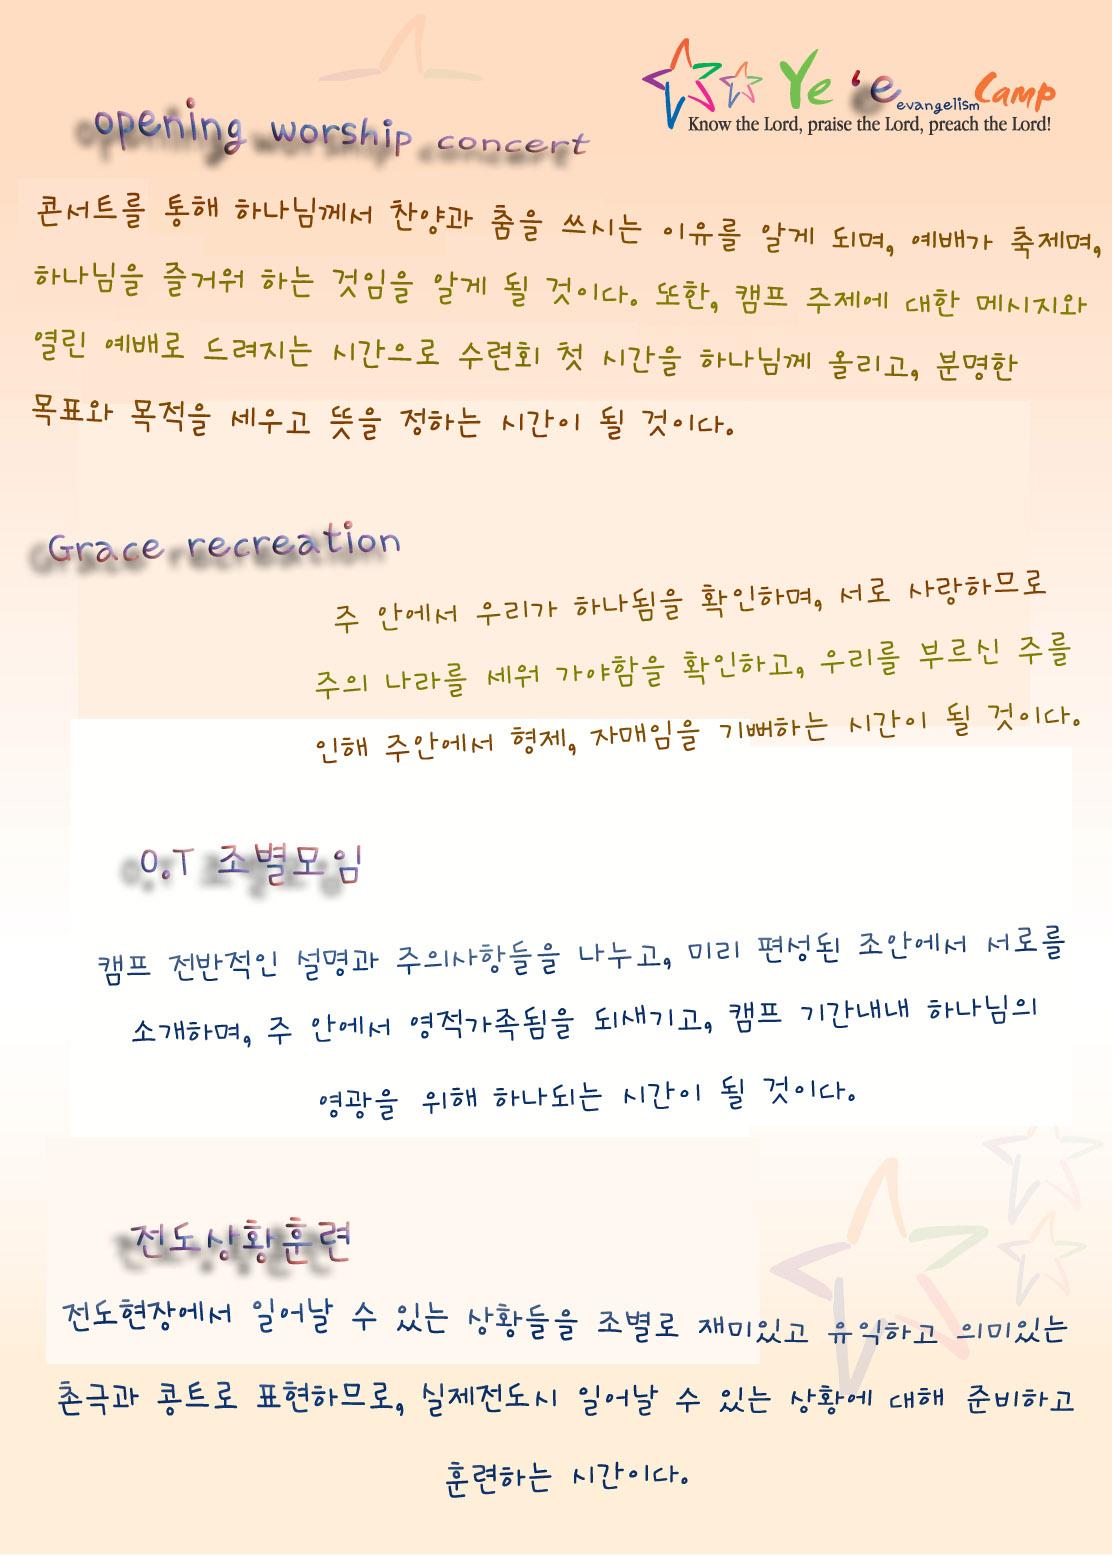 Ye'e evangelism Camp
Know the Lord, praise the Lord, preach the Lord!
opening worship concert
콘서트를 통해 하나님께서 찬양과 춤을 쓰시는 이유를 알게 되며, 예배가 축제며,
하나님을 즐거워 하는 것임을 알게 될 것이다. 또한, 캠프 주제에 대한 메시지와
열린 예배로 드려지는 시간으로 수련회 첫 시간을 하나님께 올리고, 분명한
목표와 목적을 세우고 뜻을 정하는 시간이 될 것이다.
Grace recreation
주 안에서 우리가 하나됨을 확인하며, 서로 사랑하므로
주의 나라를 세워 가야함을 확인하고, 우리를 부르신 주를
인해 주안에서 형제, 자매임을 기뻐하는 시간이 될 것이다.
O.T 조별모임
캠프 전반적인 설명과 주의사항들을 나누고, 미리 편성된 조안에서 서로를
소개하며, 주 안에서 영적가족됨을 되새기고, 캠프 기간내내 하나님의
영광을 위해 하나되는 시간이 될 것이다.
전도상황훈련
전도현장에서 일어날 수 있는 상황들을 조별로 재미있고 유익하고 의미있는
촌극과 콩트로 표현하므로, 실제전도시 일어날 수 있는 상황에 대해 준비하고
훈련하는 시간이다.